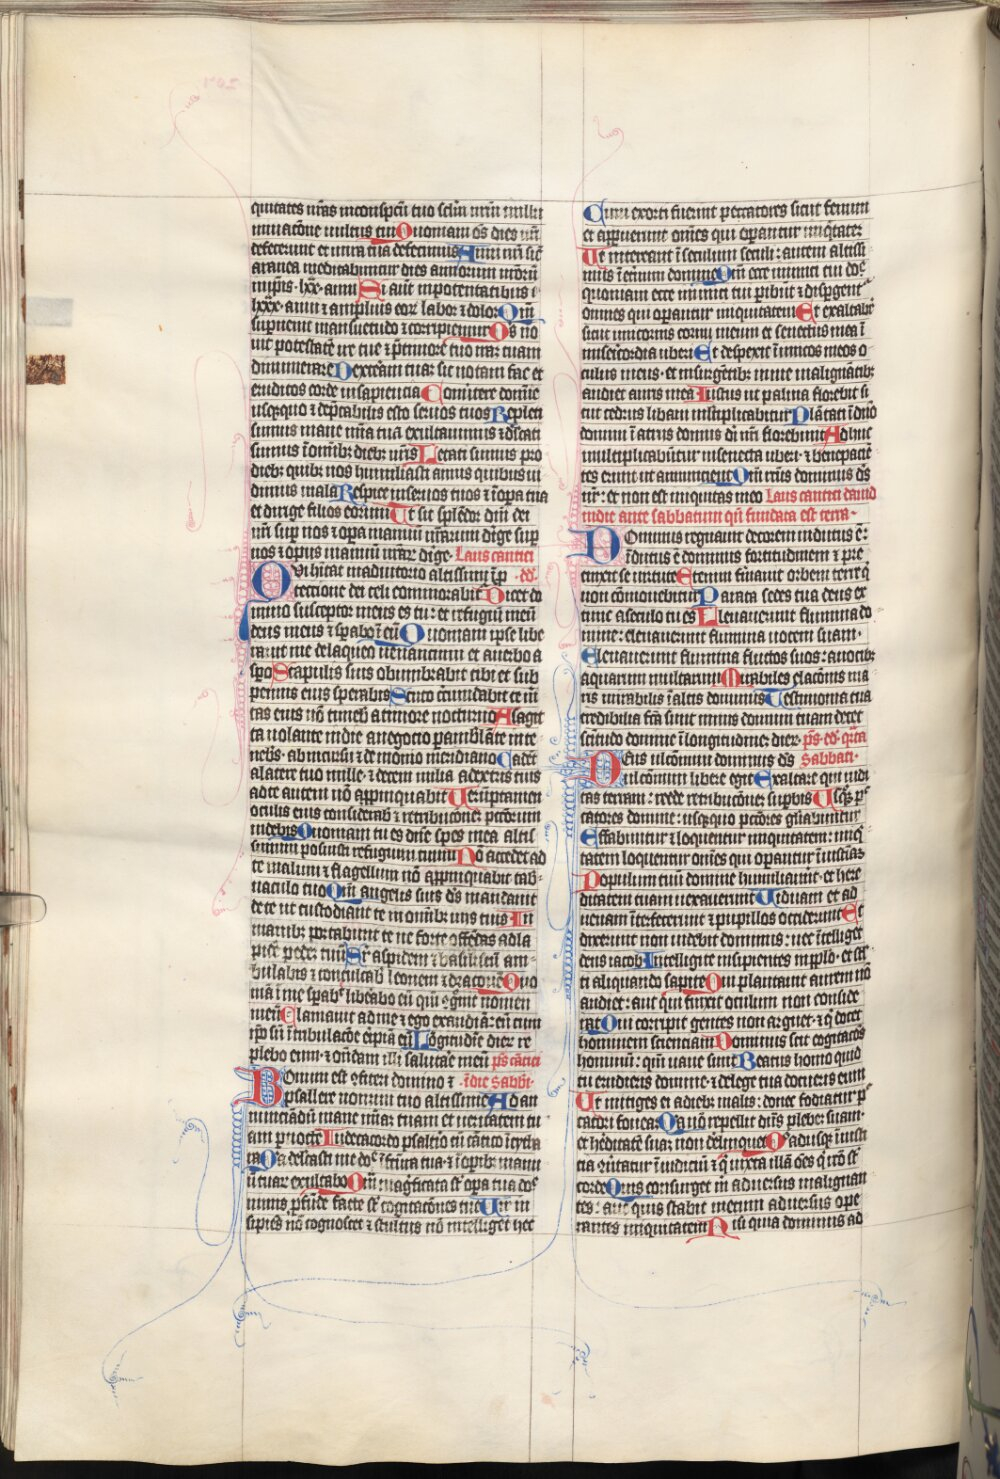 quitates nr̄as in conspc̄tu tuo sc̄lm nr̄m in illu
minatōne uultus tui Quoniam oēs dies nr̄i
defecerunt et in ira tua defecimus Anni nr̄i sic̄
aranea meditabuntur dies annorum nr̄orū
in ip̄is · lxx · anni Si aut̄ in potentatibus ·
lxxx · anni ⁊ amplius eoꝝ labor ⁊ dolor Qm̄
superuenit mansuetudo ⁊ corripiemur Quis no
uit potestatē ire tue ⁊ p̄ timore tuo iram tuam
dinumerare Dexterā tuā sic notam fac et
eruditos corde in sapiencia Conuertere domīe
usquequo ⁊ dep̄cabilis esto super seruos tuos Repleti
sumus mane mīa tua exultauimus ⁊ delc̄ati
sumus ī omībꝫ diebꝫ nr̄is Letati sumus pro
diebꝫ quibꝫ nos humiliasti annis quibus ui
dimus mala Respice in seruos tuos ⁊ ī opa tua
et dirige filios eorum Et sit splēdor dn̄i dei
nr̄i sup nos ⁊ opa manuū nr̄arum dirige sup
nos ⁊ opus manuū nr̄aꝝ dirige · Laus cantici
Qui hitat in adiutorio altissimi ī p · dd̄ ·
tectione dei celi commorabit Dicet do
mino susceptor meus es tu : et refugiū meū
deus meus ⁊ sp̄abo ī eū Quoniam ipse libe
rauit me de laqueo uenantium et a uerbo a
spo Scapulis suis obumbrabit tibi et sub
pennis eius sperabis Scuto circūdabit te ueri
tas eius nō timeb a timore nocturno A sagit
ta uolante in die a negotio p̄ambulāte in te
nebꝫ · ab incursu ⁊ demonio meridiano Cadēt
a latere tuo mille · ⁊ decem milia a dextris tuis
ad te autem nō appinquabit Verūptamen
oculis tuis considerab ⁊ retribucōneꝫ pctōrum
uidebis Quoniam tu es dn̄e spes mea altis
simum posuisti refugium tuum Nō accedet ad
te malum ⁊ flagellum nō appinquabit tab
naculo tuo Qm̄ angelis suis ds̄ mandauit
de te ut custodiant te in omībꝫ uiis tuis In
manibꝫ portabunt te ne forte offēdas ad la
pidē pedeꝫ tuū Sr̄ aspidem ⁊ basiliscū am
bulabis ⁊ conculcab leonem ⁊ draconē Quo
niā ī me sp̄ab libēabo eū ꝓtegā eū qm̄ cognouit nomen
meū Clamauit ad me ⁊ ego exaudiā eū cum
ipō sū ī tribulacōe eripiā eū Lōgitudīe dieꝝ re
plebo eum · ⁊ ostendam illi salutare meū ps̄ cātici
Bonum est ꝯfiteri domino ⁊ · ī die sabb̄i ·
psallere nomini tuo altissime Ad an
nunciādū mane mīaꝫ tuam et ueritatem tu
am p noctē In decacordo psalterio cū cātico ī cytha
ra Quia delectasti me dn̄e ī factura tua · ⁊ ī opībꝫ manu
ū tuaꝝ exultabo Qm̄ magnificata sūt opa tua dn̄e
nimis pfūde facte sūt cogitacōnes tue Vir in
sipiēs nō cognoscet ⁊ stultus nō intelliget hec
Cum exorti fuerint peccatores sicut fenum
et apparuerint omēs qui operantur iniquitatēꝫ
Ut intereant ī seculum seculi : autem altissi
mus ī eternum domine Qm̄ ecce inimici tui dn̄e
quoniam ecce inimici tui peribūt ⁊ dispergent̄
omnes qui operantur iniquitatem Et exaltabit̄
sicut unicornis cornu meum et senectus mea ī
misericordia uberi Et despexit ī inimicos meos o
culus meus · et insurgētibꝫ in me malignātibꝫ
audiet auris mea Iustus ut palma florebit si
cut cedrus libani multiplicabitur Plātati ī domo
domini ī atriis domus dei nr̄i florebunt Adhuc
multiplicabūtur in senecta uberi · ⁊ bene pacien
tes erunt ut annuncient Qm̄ rectus dominus ds̄
nr̄ : et non est iniquitas in eo Laus cantici dauid
in die ante sabbatum qn̄ fundata est terra ·
Dominus regnauit decorem indutus ē :
īdutus ē dominus fortitudinem ⁊ pre
cinxit se uirtute Etenim firmauit orbem terre q̄
non cōmouebitur Parata sedes tua deus ex
tunc a seculo tu es Eleuauerunt flumina do
mine : eleuauerunt flumina uocem suam ·
Eleuauerunt flumina fluctus suos : a uocibꝫ
aquarum multarum Mirabiles elacōnes ma
ris mirabilis ī altis dominus Testimonia tua
credibilia fc̄a sunt nimis domum tuam decet
scitudo domine ī longitudineꝫ dieꝝ · ps̄ · dd̄ · qͣrta
Deus ulcionum dominus ds̄ sabbati ·
ulcionum libere egit Exaltare qui iudi
cas terram : redde retribucōneꝫ supbis Usq̄quo pec
catores domine : usquequo pctōres gliabuntur
Effabuntur ⁊ loquentur iniquitatem : iniqͥ
tatem loquentur omēs qui operantur ī iusticiaꝫ
Populum tuū domine humiliauerūt · et here
ditatem tuam uexauerunt Viduam et ad
uenam īterfecerunt ⁊ pupillos occiderunt Et
dixerunt non uidebit dominus : nec ītelliget
deus iacob Intelligite insipientes in pplo · et stul
ti aliquando sapite Qui plantauit aurem nō
audiet : aut qui finxit oculum non conside
rat Qui corripit gentes non arguet · ⁊ q̄ docet
hominem scienciam Dominus scit cogitacōes
hominū : qm̄ uane sunt Beatus homo quem
tu erudieris domine · ⁊ de lege tua docueris eum
Ut mitiges ei a diebꝫ malis : donec fodiatur pec
catori fouea Quia nō repellet dn̄s plebeꝫ suam ·
et heditatē suaꝫ non derelinquet Quo adusqꝫ iusti
cia cōuertatur ī iudiciū ⁊ q̄ iuxta illā oēs q̄ recto sūt
corde Quis consurget m̄ aduersus malignan
tes : aut quis stabit mecum aduersus ope
rantes iniquitatem Nisi quia dominus ad